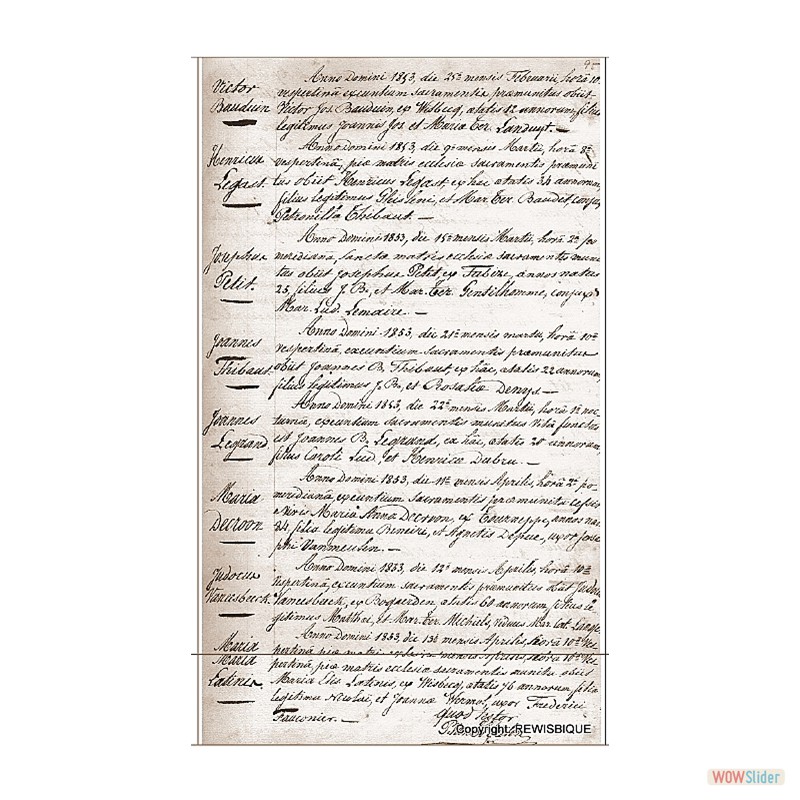 95
Victor
Bauduin
Anno Domini 1853, die 25ª mensis Februarii, horâ 10ª
vespertinâ exeuntium sacramentis præmunitus obiit
Victor Jos. Bauduin, ex Wisbecq, ætatis 12 annorum, filius
legitimus Joannis Jos. et Mariæ Ter. Landuyt. —
Henricus
Legast.
Anno Domini 1853, die 9ª mensis Martii, horâ 8ª
vespertinâ, piæ matris ecclesiæ sacramentis præmuni
tus obiit Henricus Legast, ex hac ætatis 34 annorum,
filius legitimus Ghisleni, et Mar. Ter. Baudet conjux
Petronellæ Thibaut. —
Josephus
Petit.
Anno Domini 1853, die 15ª mensis Martii, horâ 2ª po
meridianâ, sanctæ matris ecclesiæ sacramentis muni
tus obiit Josephus Petit, ex Tubize, annos natus
25, filius J. B., et Mar. Ter. Gentilhomme, conjux
Mar. Lud. Lemaire. —
Joannes
Thibaut.
Anno Domini 1853, die 21ª mensis martii, horâ 10ª
vespertinâ, exeuntium sacramentis præmunitus
obiit Joannes B. Thibaut, ex hâc, ætatis 22 annorum,
filius legitimus J. B., et Rosaliæ Denys. —
Joannes
Legrand.
Anno Domini 1853, die 22ª mensis Martii, horâ 1ª noc
turnâ, exeuntium sacramentis munitus vitâ functus
est Joannes B. Legrand, ex hâc, ætatis 20 annorum,
filius Caroli Lud., et Henricæ Dubru. —
Maria
Decroon.
Anno Domini 1853, die 11ª mensis Aprilis, horâ 2ª po
meridianâ, exeuntium sacramentis præmunita cessit
e vivis Maria Anna Decroon, ex Tourneppe, annos na
34, filia legitima et Agnetis Depue, uxor Jose
phi Vanmeulen. —
Judocus
Vanesbeeck.
Anno Domini 1853, die 12ª mensis Aprilis, horâ 10ª
vespertinâ, exeuntium sacramentis præmunitus obiit Judocus
Vanesbeeck, ex Bogaerden, ætatis 60 annorum filius le
gitimus Matthei, et Mar. Ter. Michiels, viduus Mar. Cat.
Maria
Anno Domini 1853, die 13ª mensis Aprilis, horâ 10ª ves
pertinâ, piæ matris
Maria
Latinis.
pertinâ, piæ matris ecclesiæ sacramentis munita, obiit
Maria Elis. Latinis, ex Wisbecq, ætatis 76 annorum, filia
legitima Nicolai, et Joannæ Wermol, uxor Frederici
Fauconier. —
quod testor
Copyright: REWISBIQUE
WOWSlider